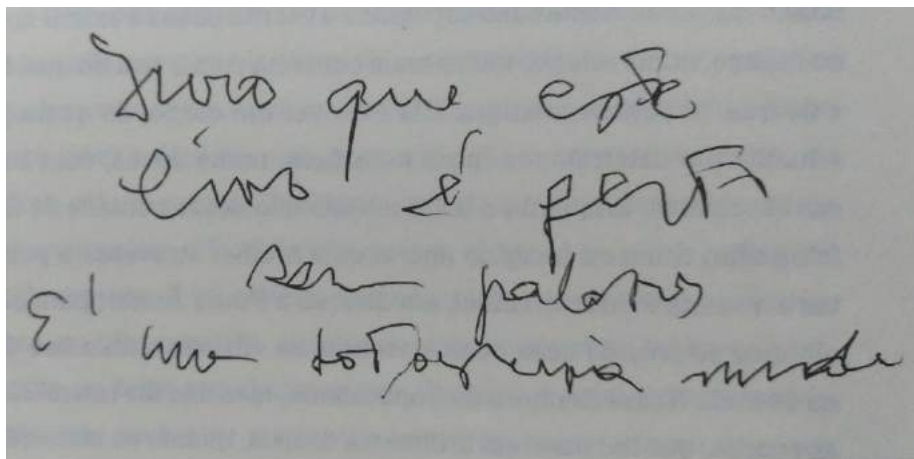 Juro que este
livro é feito
sem palavras
É uma fotografia muda